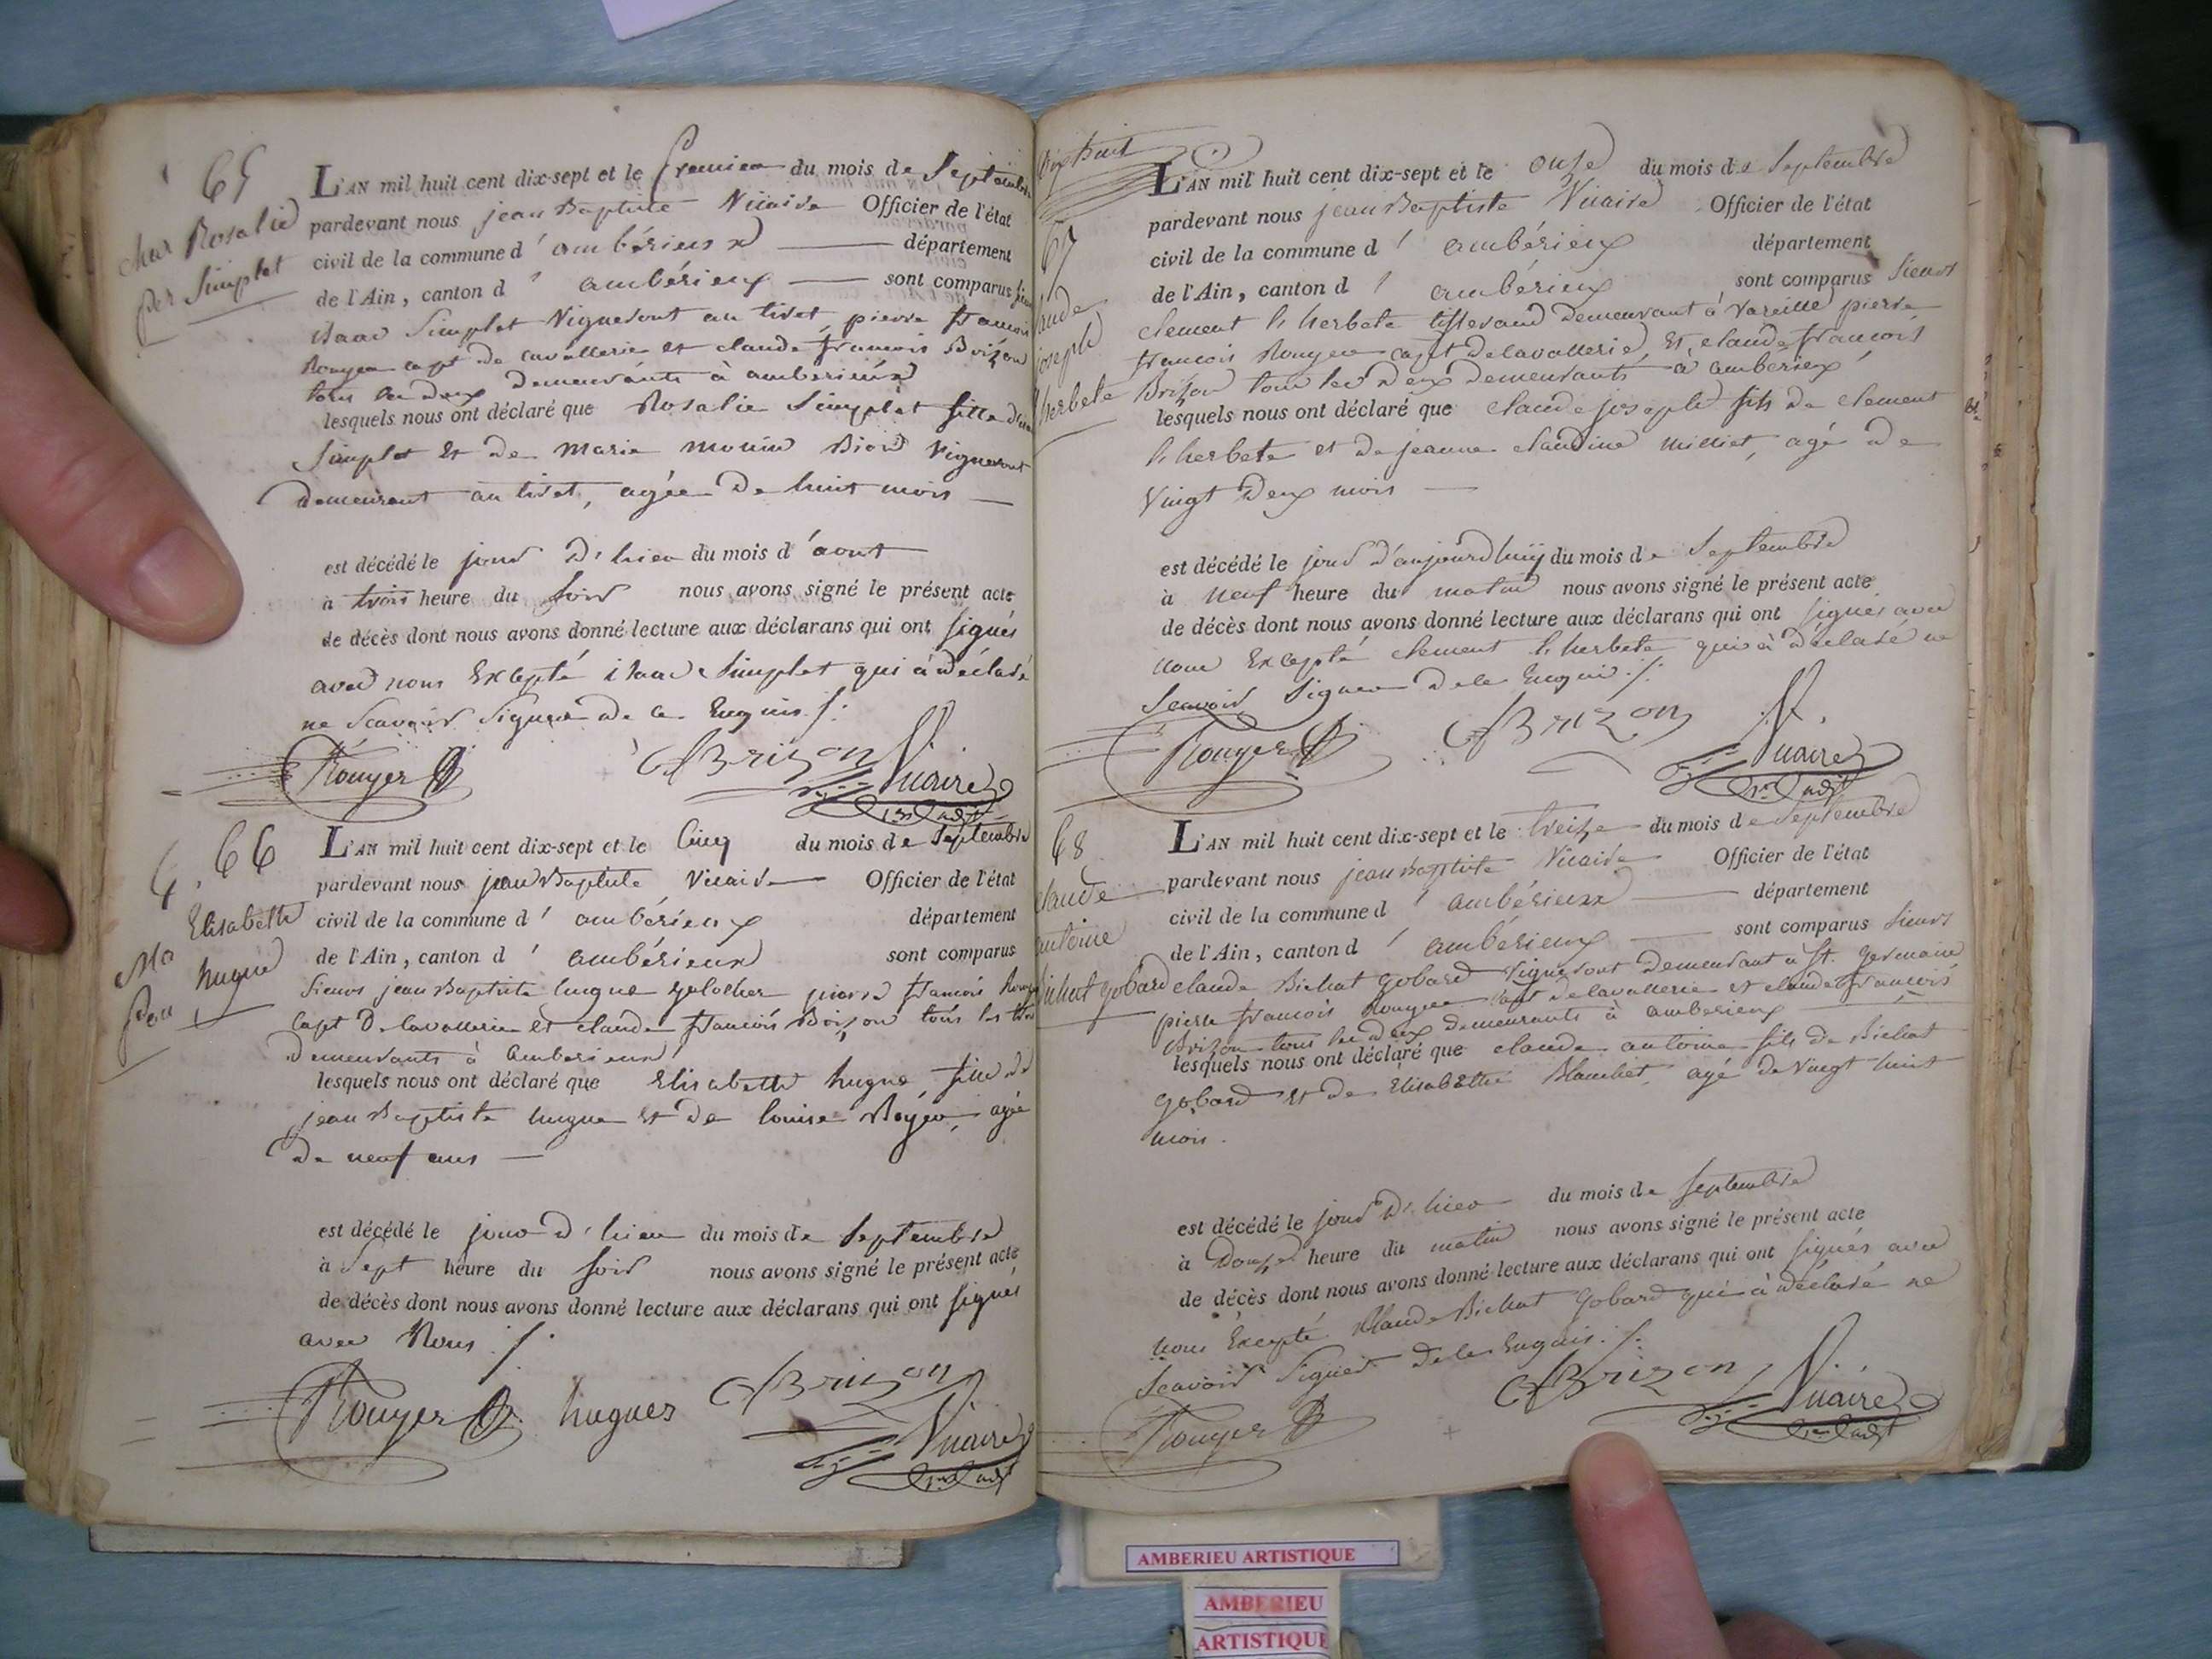 65
Rosalie
Simplet
L'AN mil huit cent dix-sept et le premier du mois de Septembre
pardevant nous jean Baptiste Vicaire Officier de l'état
civil de la commune d' ambérieux département
de l'Ain, canton d' ambérieux sont comparus
isaac Simplet Vigneront au tiret pierre francois
Rouyer capt de cavallerie et claude francois Brizon
tous les deux demeurants à ambérieux
lesquels nous ont déclaré que Rosalie Simplet fille
Simplet et de Marie Vigneront
demeurant au tiret, agée de huit mois
est décédé le jour d'hier du mois d'aout
à trois heure du soir nous avons signé le présent acte
de décès dont nous avons donné lecture aux déclarans qui ont signés
avec nous Excepté isaac Simplet qui à déclaré
ne Scavoir Signer de ce Enquis ./.
Rouyer CfBrizon Vicaire
66
Elisabeth
hugue
L'AN mil huit cent dix-sept et le Cinq du mois de Septembre
pardevant nous jean Baptiste Vicaire Officier de l'état
civil de la commune d' ambérieux département
de l'Ain, canton d' ambérieux sont comparus
Sieurs jean Baptiste hugue pierre francois
capt De cavallerie et claude francois Brizon tous les trois
Demeurants à Ambérieux
lesquels nous ont déclaré que Elisabeth hugue fille de
jean Baptiste hugue et de louise Royer, agée
De neuf ans
est décédé le jour d'hier du mois de Septembre
à Sept heure du soir nous avons signé le présent acte
de décès dont nous avons donné lecture aux déclarans qui ont signés
avec Nous ./.
Rouyer hugues CfBrizon Vicaire
67
joseph
L'AN mil huit cent dix-sept et le onze du mois de Septembre
pardevant nous jean Baptiste Vicaire Officier de l'état
civil de la commune d' ambérieux département
de l'Ain, canton d' ambérieux sont comparus Sieurs
clement l'herbete tisserand demeurant à Vareille pierre
francois Rouyer capt De cavallerie, Et claude francois
Brizon tous les deux demeurants à ambérieux
lesquels nous ont déclaré que claude joseph fils de clement
l'herbete et de jeanne claudine Milliet, agé de
Vingt deux mois
est décédé le jour d'aujourd'huy du mois de Septembre
à neuf heure du matin nous avons signé le présent acte
de décès dont nous avons donné lecture aux déclarans qui ont signés avec
nous Excepté clement l'herbete qui à déclaré ne
Scavoir Signer de ce Enquis ./.
Rouyer CfBrizon Vicaire
68
L'AN mil huit cent dix-sept et le treize du mois de Septembre
pardevant nous jean Baptiste Vicaire Officier de l'état
civil de la commune d' ambérieux département
de l'Ain, canton d' ambérieux sont comparus Sieurs
claude Bichat gobard Vigneront Demeurant à St. germain
pierre francois Rouyer capt de cavallerie et claude francois
Brizon tous les deux demeurants à ambérieux
lesquels nous ont déclaré que claude antoine fils de Bichat
gobard et de Elisabethe Blanchet, agé de Vingt huit
mois.
est décédé le jour d'hier du mois de Septembre
à Douze heure du matin nous avons signé le présent acte
de décès dont nous avons donné lecture aux déclarans qui ont signés avec
nous Excepté Claude Bichat Gobard qui à déclaré ne
Scavoir Signer de ce Enquis ./.
Rouyer CfBrizon Vicaire
AMBERIEU ARTISTIQUE
AMBERIEU
ARTISTIQUE